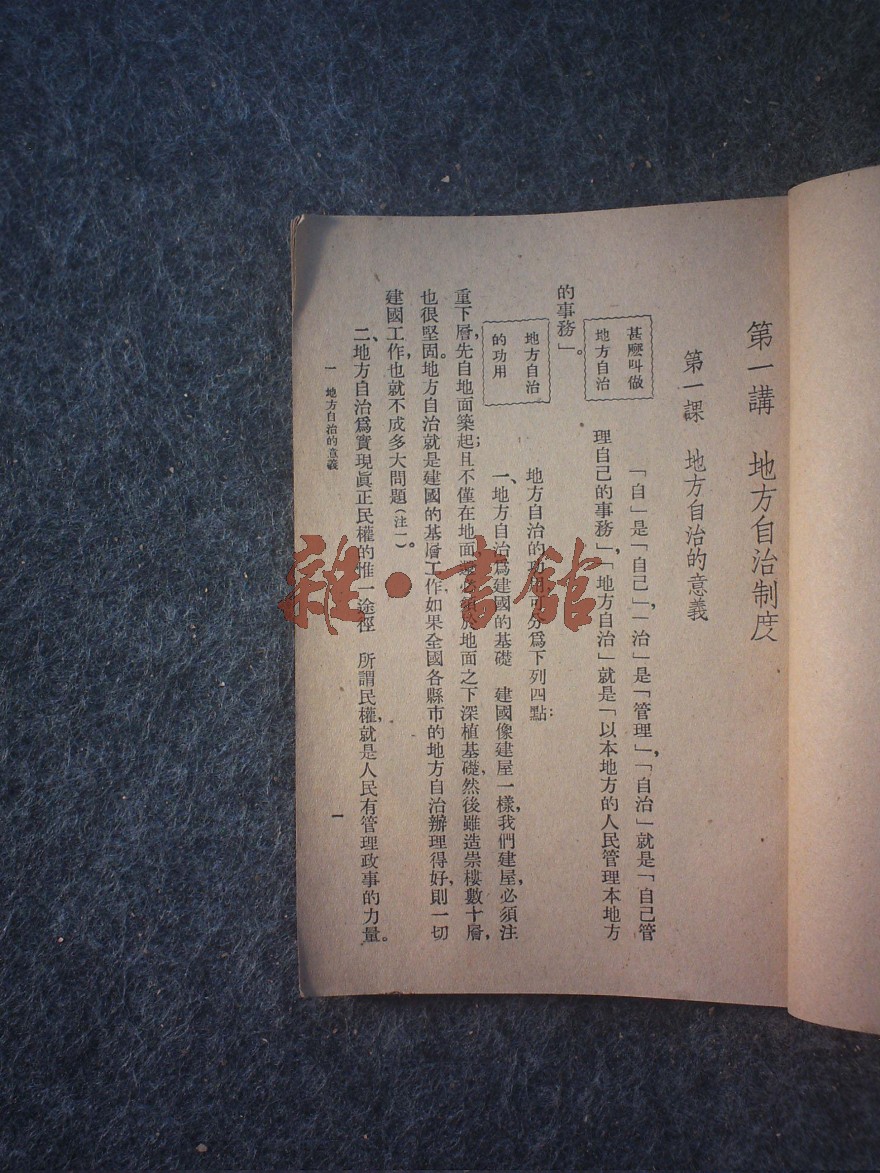 第一講　地方自治制度
第一課　地方自治的意義
甚麽叫做
地方自治
「自」是「自己」，「治」是「管理」，「自治」就是「自己管
理自己的事務」，「地方自治」就是「以本地方的人民管理本地方
的事務」。
地方自治
的功用
地方自治的功用可分爲下列四點：
一、地方自治爲建國的基礎　建國像建屋一樣，我們建屋，必須注
重下層，先自地面築起；且不僅在地面，還必須於地面之下深植基礎，然後雖造崇樓數十層，
也很堅固。地方自治就是建國的基層工作，如果全國各縣市的地方自治辦理得好，則一切
建國工作，也就不成多大問題（注一）。
二、地方自治爲實現眞正民權的惟一途徑　所謂民權，就是人民有管理政事的力量。
一　地方自治的意義
一
雜·書館